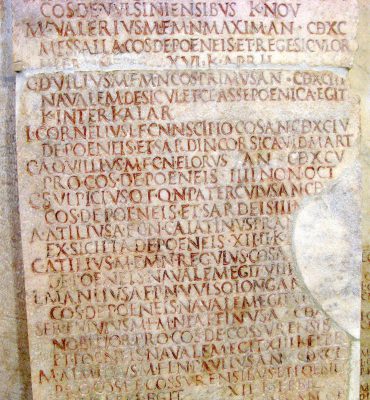 COS DE VVLSINIENSIBVS K NOV
M VALERIVS M F M N MAXIMAN CDXC
MESSALLA COS DE POENEIS ET REGE SICVLOR
XVI K APRIL
C DVILIVS M F M N COS PRIMVS AN CDXCIII
NAVALEM DE SICVL ET CLASSE POENICA EGIT
K INTERKALAR
L CORNELIVS L F CN N SCIPIO COS AN CDXCIV
DE POENEIS ET SARDIN CORSICA V ID MART
C AQVILLIVS M F C N FLORVS AN CDXCV
PRO COS DE POENEIS IIII NON OCT
C SVLPICIVS Q F Q N PATERCVLVS AN CD
COS DE POENEIS ET SARDEIS III
A ATILIVS A F C N CALATINVS PRA
EX SICILIA DE POENEIS XIIII K
C ATILIVS M F M N REGVLVS COS
DE POENEIS NAVALEM EGIT VIII
L MANLIVS A F P N VVLSO LONG AN
COS DE POENEIS NAVALEM EGIT
SER FVLVIVS M F M N PAETINVS A CD
NOBILIOR PRO COS DE COSSVRENSIB
ET POENEIS NAVALEM EGIT XIII K FEBR
M AIMILIVS M F L N PAVLLVS AN CDXCI
PRO COS DE COSSVRENSIBVS ET POENEIS
EGIT XII K FEBR